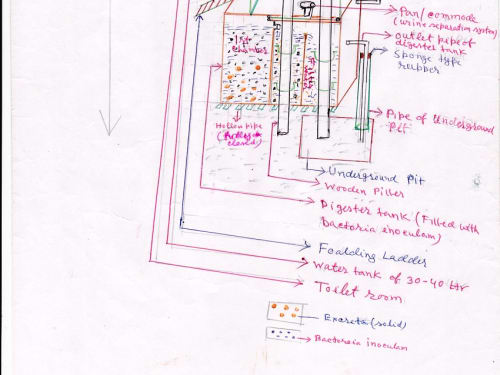 Pan/commode
(urine separation system)
outlet pipe of
digester tank
Sponge type
rubber
1st
chamber
Pipe of Underground
Pit
Hollow pipe
closed)
Underground Pit
Wooden Piller
Digester tank (Filled with
bacteria inoculam)
Foalding Ladder
Water tank of 30-40 ltr
Toilet room
Excreta (solid)
Bacteria inoculam